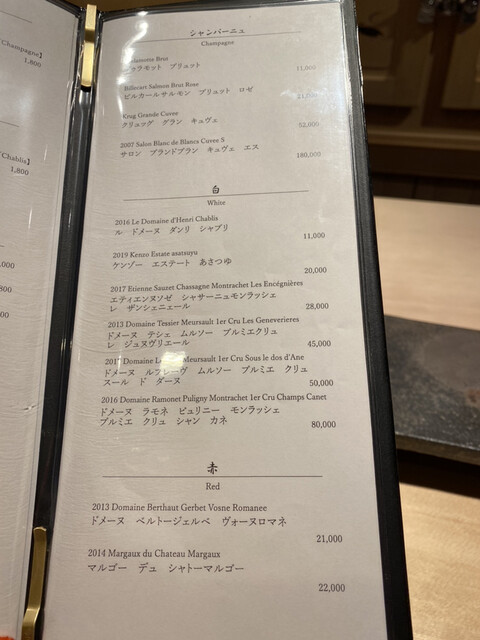 Champagne】
1,800
Chablis】
1,800
,000
800
000
シャンパーニュ
Champagne
Brut
ラモット ブリュット
11,000
Billecart Salmon Brut Rose
ビルカールサルモン ブリュット ロゼ
Krug Grande Cuvee
クリュッグ グラン キュヴェ
52,000
2007 Salon Blanc de Blancs Cuvee S
サロン ブランドブラン キュヴェ エス
180,000
白
White
2016 Le Domaine d'Henri Chablis
ル ドメーヌ ダンリ シャブリ
11,000
2019 Kenzo Estate asatsuyu
ケンゾー エステート あさつゆ
20,000
2017 Etienne Sauzet Chassagne Montrachet Les Encégnières
エティエンヌソゼ シャサーニュモンラッシェ
レ ザンシェニエール
28,000
2013 Domaine Tessier Meursault 1er Cru Les Genevrieres
ドメーヌ テシェ ムルソー プルミエクリュ
レ ジュヌヴリエール
45,000
Domaine Meursault 1er Cru Sous le dos d'Ane
ドメーヌ ルフレーヴ ムルソー プルミエ クリュ
スール ド ダーヌ
50,000
2016 Domaine Ramonet Puligny Montrachet 1er Cru Champs Canet
ドメーヌ ラモネ ピュリニー モンラッシェ
プルミエ クリュ シャン カネ
80,000
赤
Red
2013 Domaine Berthaut Gerbet Vosne Romanee
ドメーヌ ベルトージェルベ ヴォーヌロマネ
21,000
2014 Margaux du Chateau Margaux
マルゴー デュ シャトーマルゴー
22,000